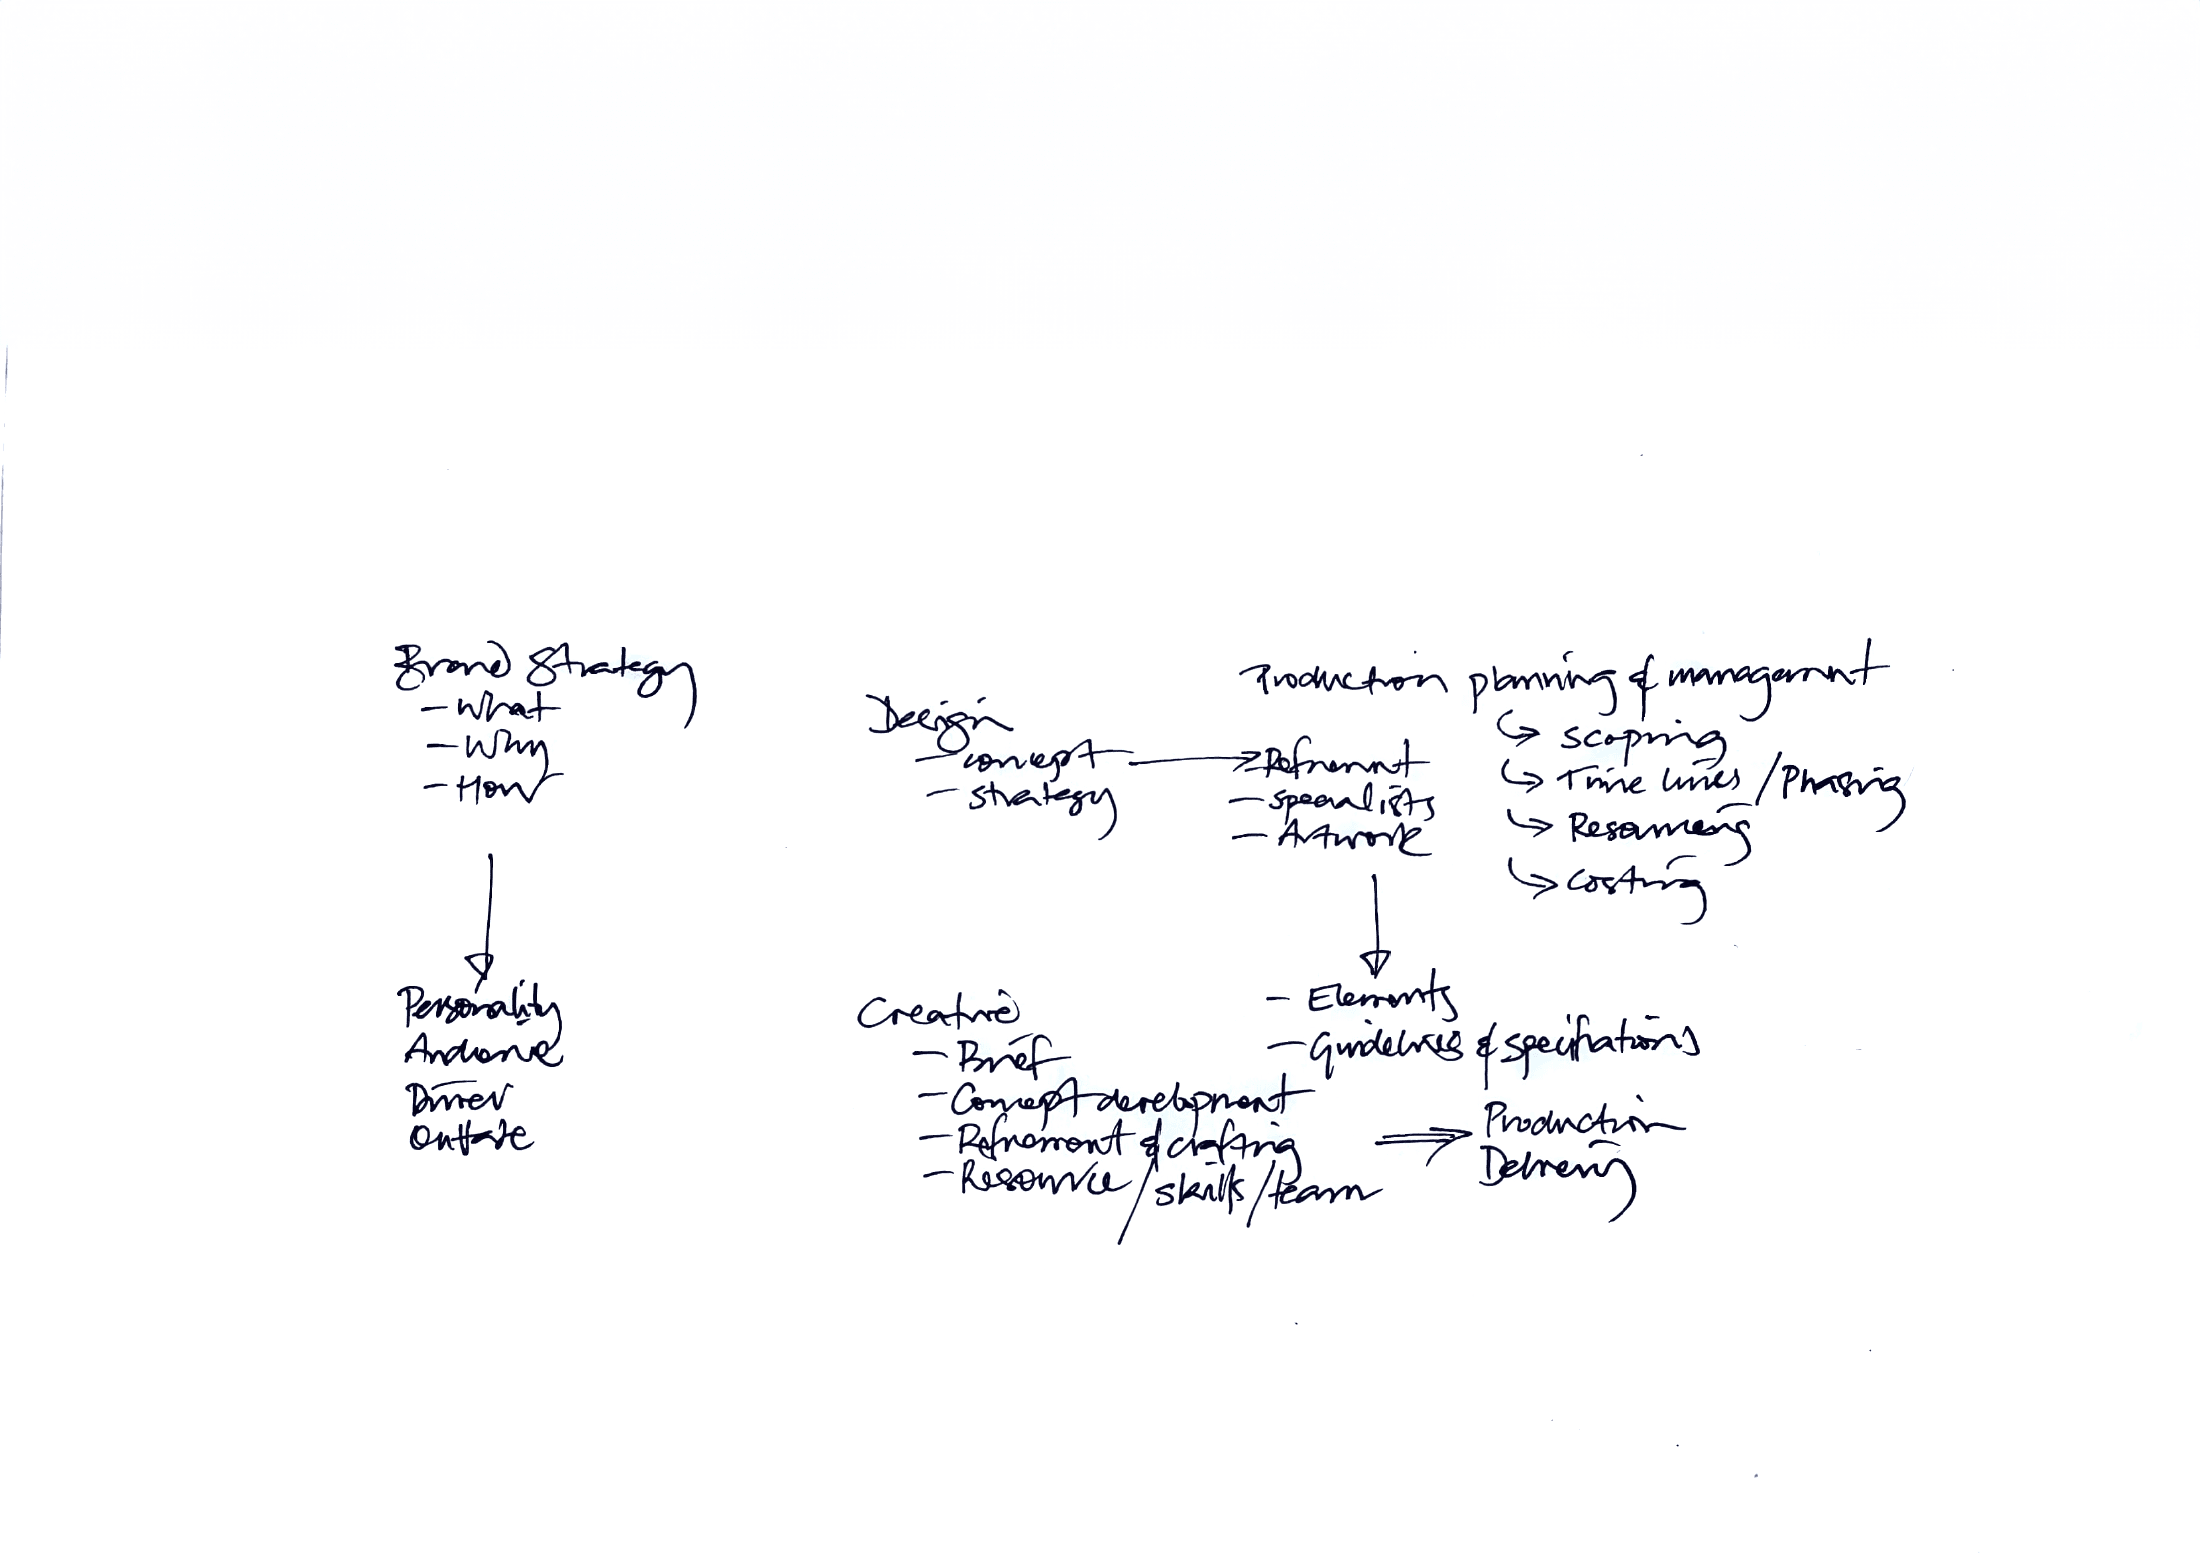 Brand Strategy
- What
- Why
- How
Personality
Audience
Driver
Outtake
Design
- concept
- strategy
Refinement
- specialists
- Artwork
Production planning & management
scoping
Time lines / Phasing
Resourcing
Costing
- Elements
- Guidelines & specifications
Creative
- Brief
- Concept development
- Refinement & crafting
- Resource / skills / team
Production
Delivery